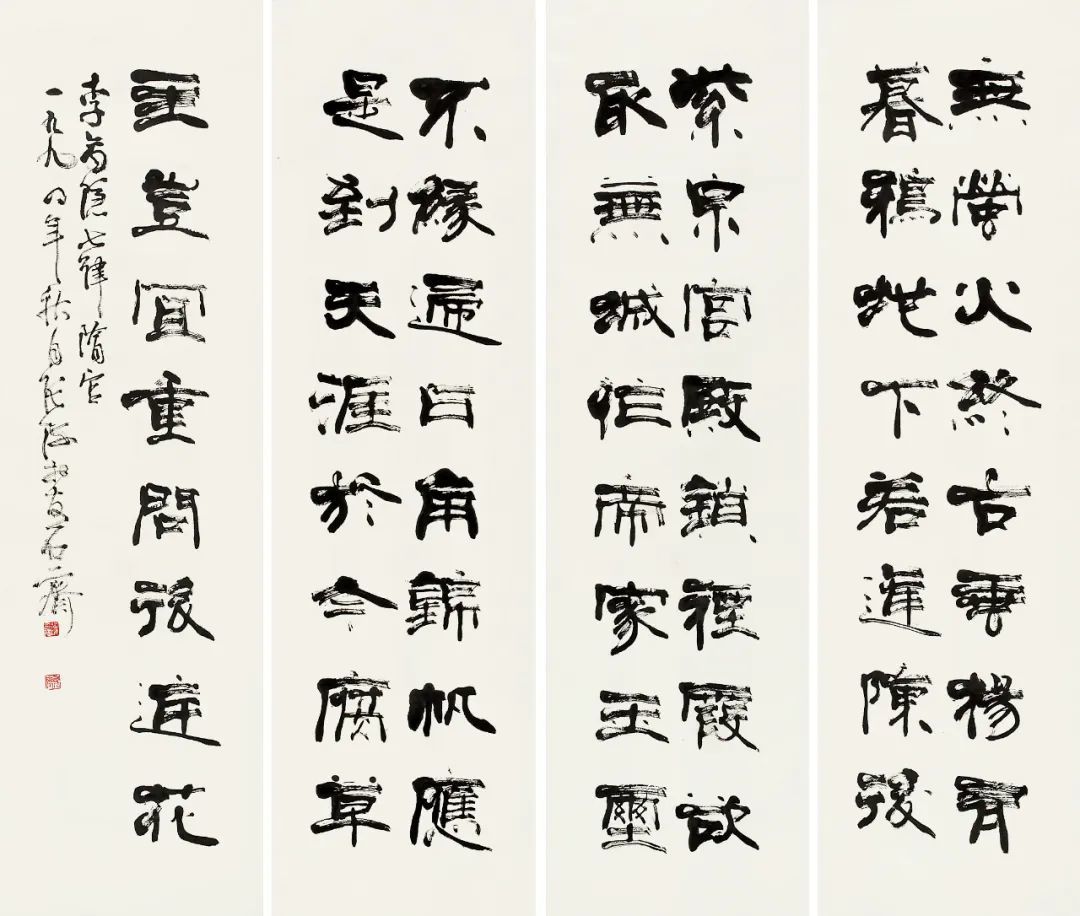 無螢火終古垂楊有
暮鴉地下若逢陳後
紫泉宮殿鎖煙霞欲
取蕪城作帝家玉璽
不緣歸日角錦帆應
是到天涯於今腐草
主豈宜重問後庭花
李商隱七律隋宮
一九九四年秋月石齋